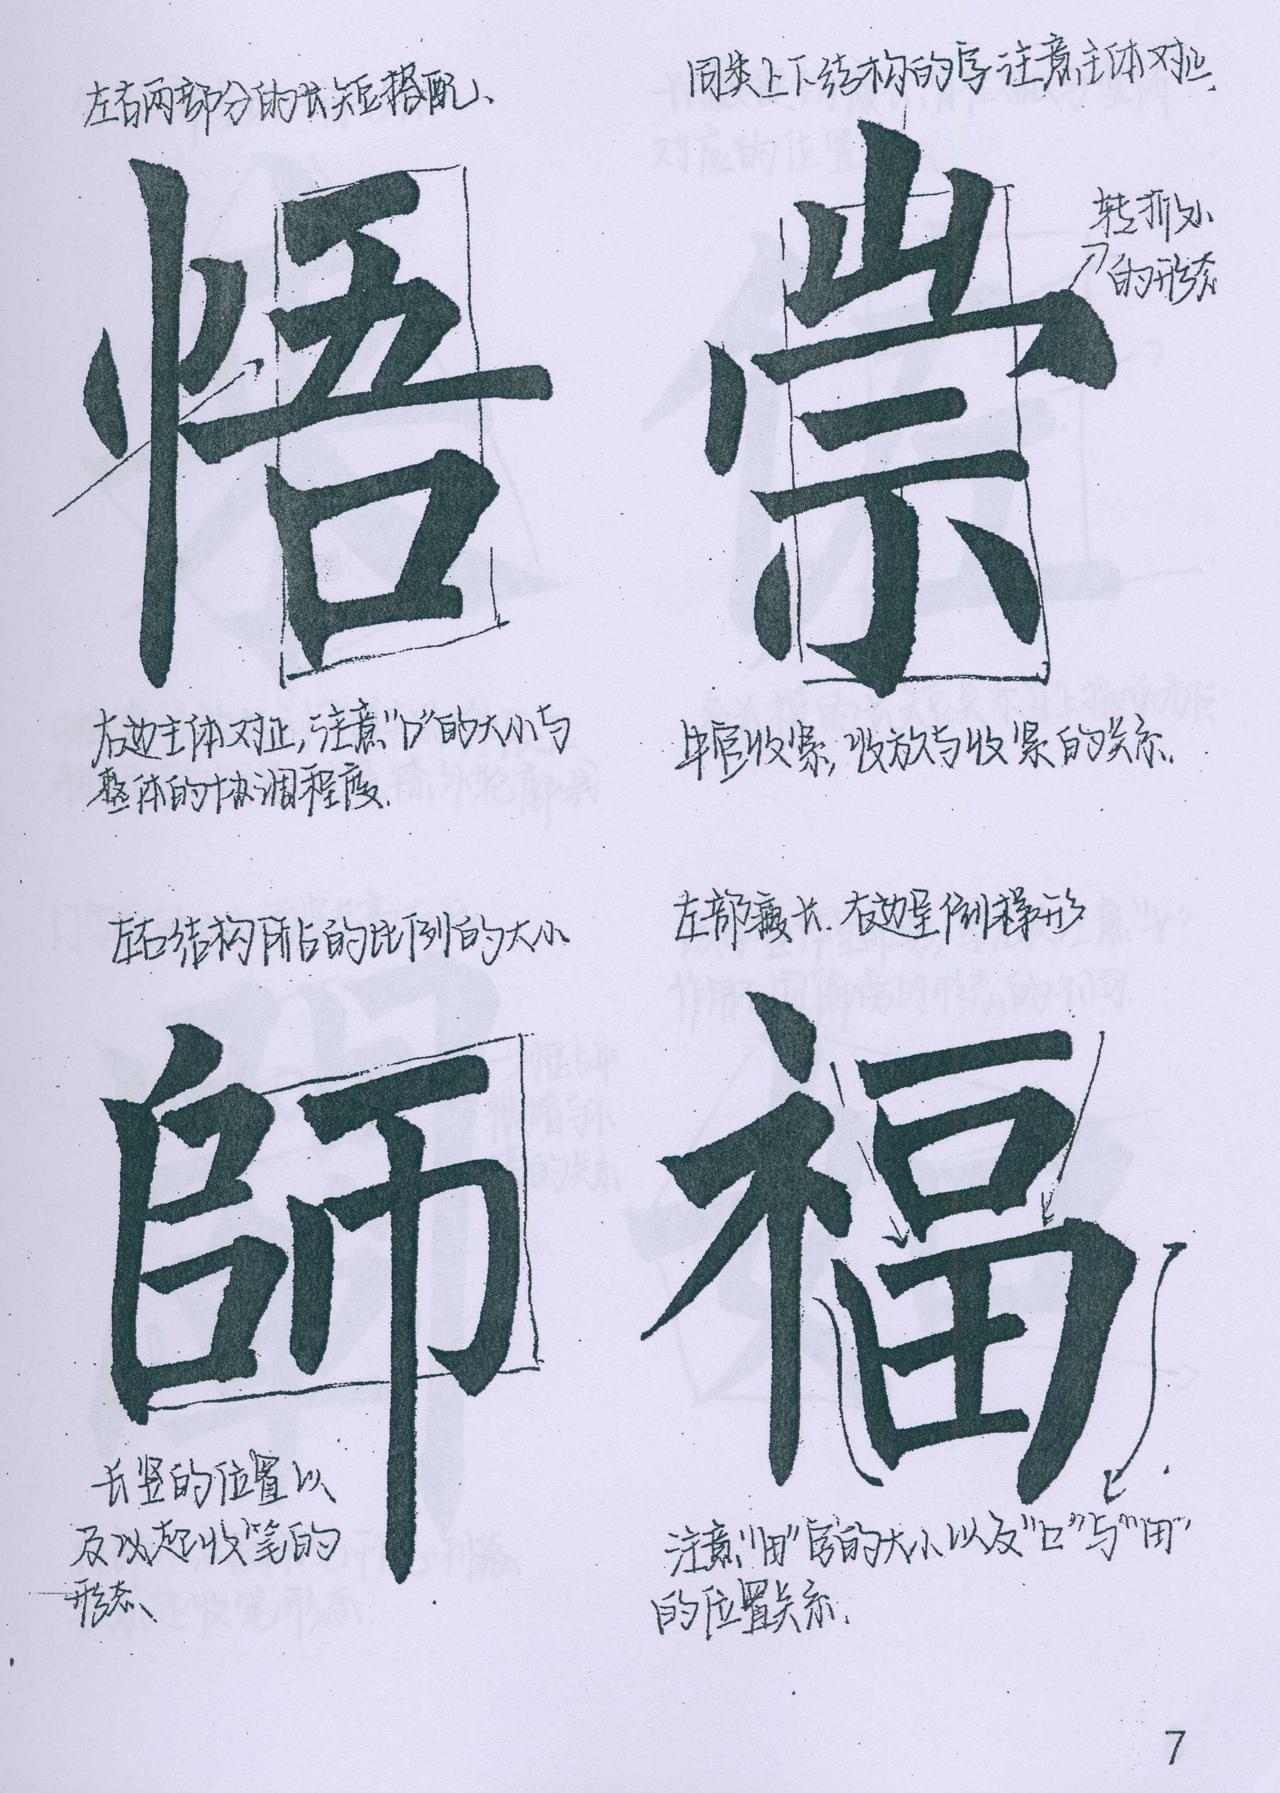 左右两部分的长短搭配、
悟
右边主体对正,注意“口”的大小与
整体的协调程度.
同类上下结构的字注意主体对正.
崇
转折处
的形态
中宫收紧,收放与收紧的关系.
左右结构所占的比例的大小
師
长竖的位置以
及以起收笔的
形态、
左部瘦长.右边呈倒梯形
福
注意“田”字的大小以及“口”与“田”
的位置关系.
7